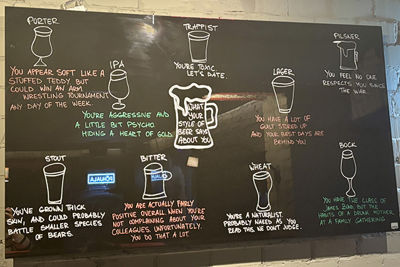 PORTER
YOU APPEAR SOFT LIKE A
STUFFED TEDDY BUT
COULD WIN AN ARM
WRESTLING TOURNAMENT
ANY DAY OF THE WEEK.
IPA
YOU'RE AGGRESSIVE AND
A LITTLE BIT PSYCHO
HIDING A HEART OF GOLD
TRAPPIST
YOU'RE TOXIC.
LET'S DATE.
WHAT
YOUR
STYLE OF
BEER SAYS
ABOUT YOU
LAGER
YOU HAVE A LOT OF
GUILT STORED UP
AND YOUR BEST DAYS ARE
BEHIND YOU
PILSNER
YOU FEEL NO ONE
RESPECTS YOU SINCE
THE WAR.
STOUT
YOU'VE GROWN THICK
SKIN, AND COULD PROBABLY
BATTLE SMALLER SPECIES
OF BEARS.
BITTER
YOU ARE ACTUALLY FAIRLY
POSITIVE OVERALL WHEN YOU'RE
NOT COMPLAINING ABOUT YOUR
COLLEAGUES. UNFORTUNATELY,
YOU DO THAT A LOT.
WHEAT
YOU'RE A NATURALIST
PROBABLY NAKED AS YOU
READ THIS WE DON'T JUDGE.
BOCK
YOU HAVE THE CLASS OF
JAMES BOND BUT THE
HABITS OF A DRUNK MOTHER
AT A FAMILY GATHERING